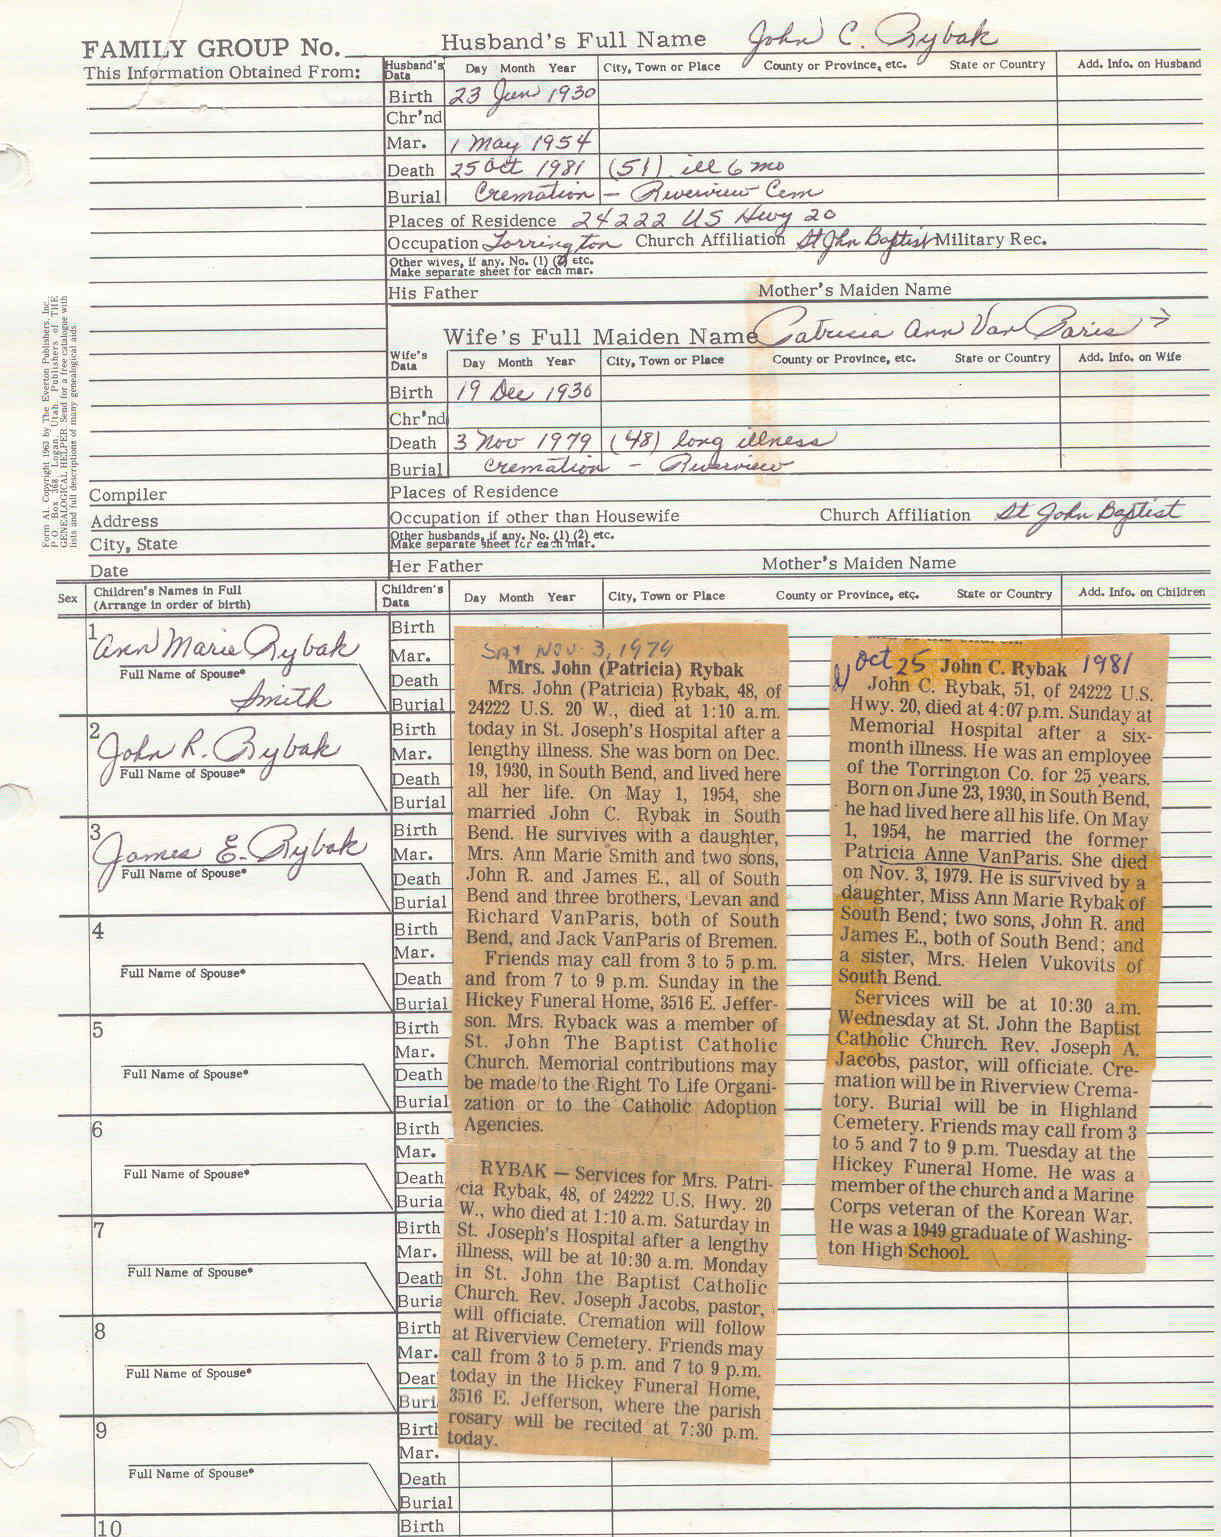 FAMILY GROUP No. Husband's Full Name John C. Rybak
This Information Obtained From:
Husband's Data Day Month Year City, Town or Place County or Province, etc. State or Country Add. Info. on Husband
Birth 23 Jun 1930
Chr'nd
Mar. 1 May 1954
Death 25 Oct 1981 (51) ill 6 mo
Burial Cremation - Riverview Cem
Places of Residence 24222 US Hwy 20
Occupation Torrington Church Affiliation St John Baptist Military Rec.
Other wives, if any. No. (1) (2) etc.
Make separate sheet for each mar.
His Father Mother's Maiden Name
Form A1. Copyright 1963 by The Everton Publishers, Inc.
P.O. Box 368 Logan, Utah. Publishers of THE
GENEALOGICAL HELPER. Send for a free catalogue with
lists and full descriptions of many genealogical aids.
Wife's Full Maiden Name Patricia Ann Van Paris →
Wife's Data Day Month Year City, Town or Place County or Province, etc. State or Country Add. Info. on Wife
Birth 19 Dec 1930
Chr'nd
Death 3 Nov 1979 (48) long illness
Burial Cremation - Riverview
Compiler Places of Residence
Address Occupation if other than Housewife Church Affiliation St John Baptist
City, State Other husbands, if any. No. (1) (2) etc.
Make separate sheet for each mar.
Date Her Father Mother's Maiden Name
Sex Children's Names in Full
(Arrange in order of birth)
Children's Data Day Month Year City, Town or Place County or Province, etc. State or Country Add. Info. on Children
1 Ann Marie Rybak
Full Name of Spouse*
Smith
Birth
Mar.
Death
Burial
2 John R. Rybak
Full Name of Spouse*
Birth
Mar.
Death
Burial
3 James E. Rybak
Full Name of Spouse*
Birth
Mar.
Death
Burial
4
Full Name of Spouse*
Birth
Mar.
Death
Burial
5
Full Name of Spouse*
Birth
Mar.
Death
Burial
6
Full Name of Spouse*
Birth
Mar.
Death
Buria
7
Full Name of Spouse*
Birth
Mar.
Death
Buria
8
Full Name of Spouse*
Birth
Mar.
Deat
Buri
9
Full Name of Spouse*
Birth
Mar.
Death
Burial
10
Birth
Sat Nov. 3, 1979
Mrs. John (Patricia) Rybak
Mrs. John (Patricia) Rybak, 48, of
24222 U.S. 20 W., died at 1:10 a.m.
today in St. Joseph's Hospital after a
lengthy illness. She was born on Dec.
19, 1930, in South Bend, and lived here
all her life. On May 1, 1954, she
married John C. Rybak in South
Bend. He survives with a daughter,
Mrs. Ann Marie Smith and two sons,
John R. and James E., all of South
Bend and three brothers, Levan and
Richard VanParis, both of South
Bend, and Jack VanParis of Bremen.
Friends may call from 3 to 5 p.m.
and from 7 to 9 p.m. Sunday in the
Hickey Funeral Home, 3516 E. Jeffer-
son. Mrs. Ryback was a member of
St. John The Baptist Catholic
Church. Memorial contributions may
be made to the Right To Life Organi-
zation or to the Catholic Adoption
Agencies.
RYBAK — Services for Mrs. Patri-
cia Rybak, 48, of 24222 U.S. Hwy. 20
W., who died at 1:10 a.m. Saturday in
St. Joseph's Hospital after a lengthy
illness, will be at 10:30 a.m. Monday
in St. John the Baptist Catholic
Church. Rev. Joseph Jacobs, pastor,
will officiate. Cremation will follow
at Riverview Cemetery. Friends may
call from 3 to 5 p.m. and 7 to 9 p.m.
today in the Hickey Funeral Home,
3516 E. Jefferson, where the parish
rosary will be recited at 7:30 p.m.
today.
Oct 25 John C. Rybak 1981
John C. Rybak, 51, of 24222 U.S.
Hwy. 20, died at 4:07 p.m. Sunday at
Memorial Hospital after a six-
month illness. He was an employee
of the Torrington Co. for 25 years.
Born on June 23, 1930, in South Bend,
he had lived here all his life. On May
1, 1954, he married the former
Patricia Anne VanParis. She died
on Nov. 3, 1979. He is survived by a
daughter, Miss Ann Marie Rybak of
South Bend; two sons, John R. and
James E., both of South Bend; and
a sister, Mrs. Helen Vukovits of
South Bend.
Services will be at 10:30 a.m.
Wednesday at St. John the Baptist
Catholic Church. Rev. Joseph A.
Jacobs, pastor, will officiate. Cre-
mation will be in Riverview Crema-
tory. Burial will be in Highland
Cemetery. Friends may call from 3
to 5 and 7 to 9 p.m. Tuesday at the
Hickey Funeral Home. He was a
member of the church and a Marine
Corps veteran of the Korean War.
He was a 1949 graduate of Washing-
ton High School.